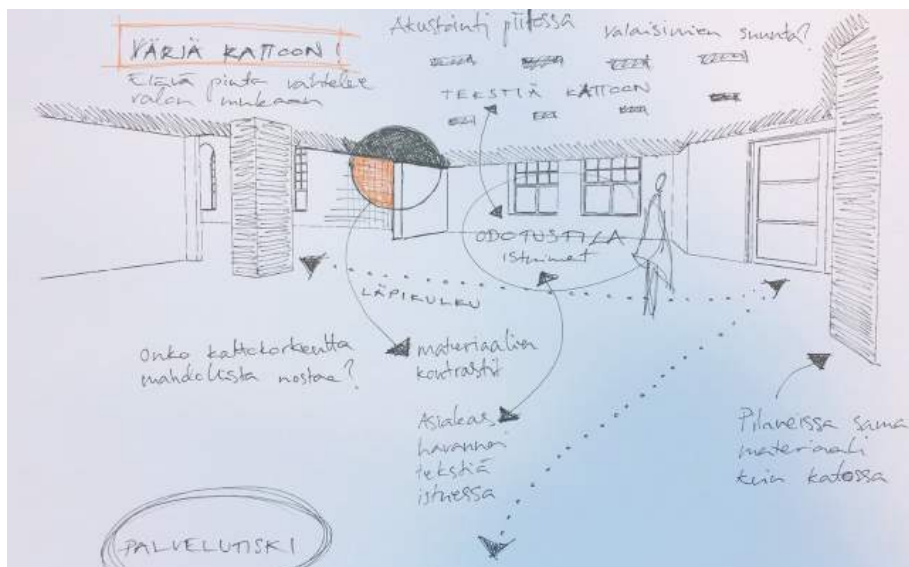 VÄRIÄ KATTOON!
Elävä pinta vaihtelee
valon mukaan
Akustointi piilossa
Valaisimien suunta?
TEKSTIÄ KATTOON
ODOTUSTILA
istuimet
LÄPIKULKU
Onko kattokorkeutta
mahdollista nostaa?
materiaalien
kontrastit
Asiakas
havannoi
tekstiä
istuessa
Pilareissa sama
materiaali
kuin katossa
PALVELUTISKI